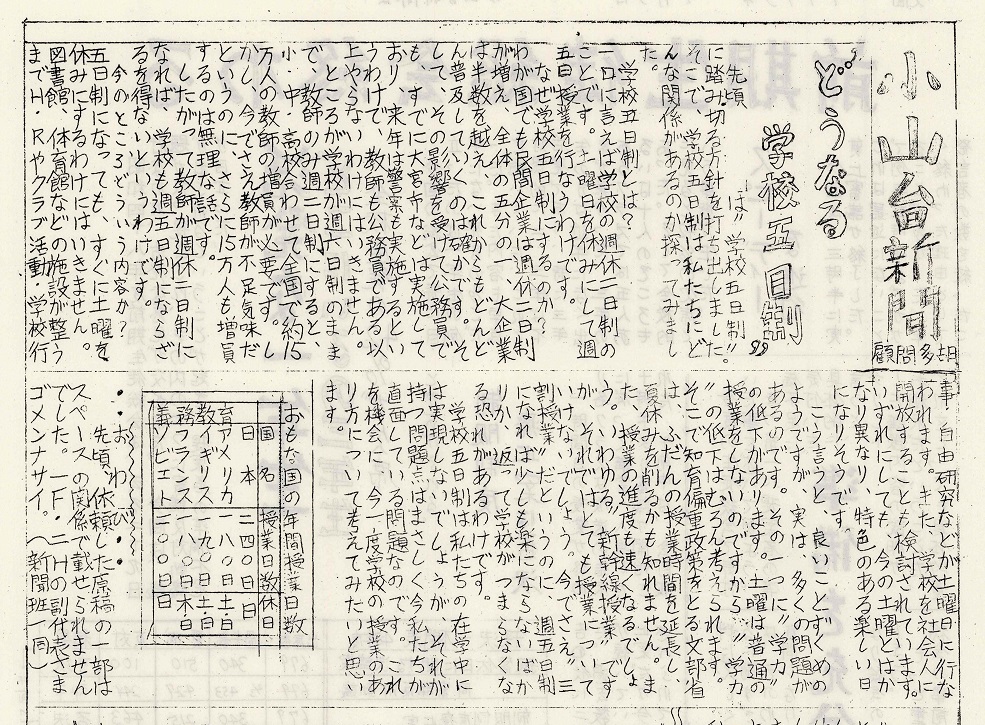 小山台新聞
顧問多胡
どうなる
学校五日制
先頃、　　は〝学校五日制〟
に踏み切る方針を打ち出しました。
そこで、学校五日制は私たちにど
んな関係があるのか探ってみまし
た。
学校五日制とは？
一口に言えば学校の週休二日制の
ことです。土曜日を休みにして週
五日授業を行なうわけです。
なぜ学校五日制にするのか？
わが国でも民間企業は週休二日制
が増え、全体の五分の一、大企業
は半数を越え、これからもどんど
ん普及していくのは確かです。そ
して、その影響を受けて公務員で
も、すでに大宮市などは実施して
おり、来年は警察も実施するとい
うわけで、教師も公務員である以
上やらないわけにはいきません。
ところが学校が週六日制のまま
で、教師のみ週二日制にすると、
小・中・高校合わせて全国で約15
万人の教師の増員が必要です。し
かし、今でさえ教師が不足気味だ
というのに、さらに15万人も増員
するのは無理な話です。
したがって教師が週休二日制に
なれば、学校も週五日制にならざ
るを得ないというわけです。
今のところどういう内容か？
五日制になっても、すぐに土曜を
休みにするわけにはいきません。
図書館、体育館などの施設が整う
までH・Rやクラブ活動・学校行
事・自由研究などが土曜日に行な
われます。また、学校を社会人に
開放することも検討されています。
いずれにしても、今の土曜とはか
なり異なり、特色のある楽しい日
になりそうです。
こう言うと、良いことずくめの
ようですが、実は、多くの問題が
あるのです。その一つに〝学力〟
の低下があります。土曜は普通の
授業をしないのですから…〝学力
〟の低下はむろん考えられます。
そこで知育偏重政策をとる文部省
は、ふだんの授業時間を延長し、
夏休みを削るかも知れません。ま
た、授業の進度も速くなるでしょ
う。いわゆる〝新幹線授業〟です
が、それではとても授業について
いけないでしょう。今でさえ〝三
割授業〟だというのに、週五日制
になれば少しも楽にならないばか
りか、返って学校がつまらなくな
る恐れがあるわけです。
学校五日制は私たちの在学中に
は実現しないでしょうが、それが
持つ問題点はまさしく今私たちが
直面している問題なのです。これ
を機会に、今一度学校の授業のあ
り方について考えてみたいと思い
ます。
おもな国の年間授業日数
国名　授業日数　休日
日本　二四〇日　日
アメリカ　一八〇日　土・日
イギリス　一九〇日　土・日
フランス　一八〇日　木・日
ソビエト　二一〇日　日
義務教育
・・・おわび・・・
先頃、依頼した原稿の一部は
スペースの関係で載せられません
でした。一F・二Hの副代表さま
ゴメンナサイ。（新聞班一同）